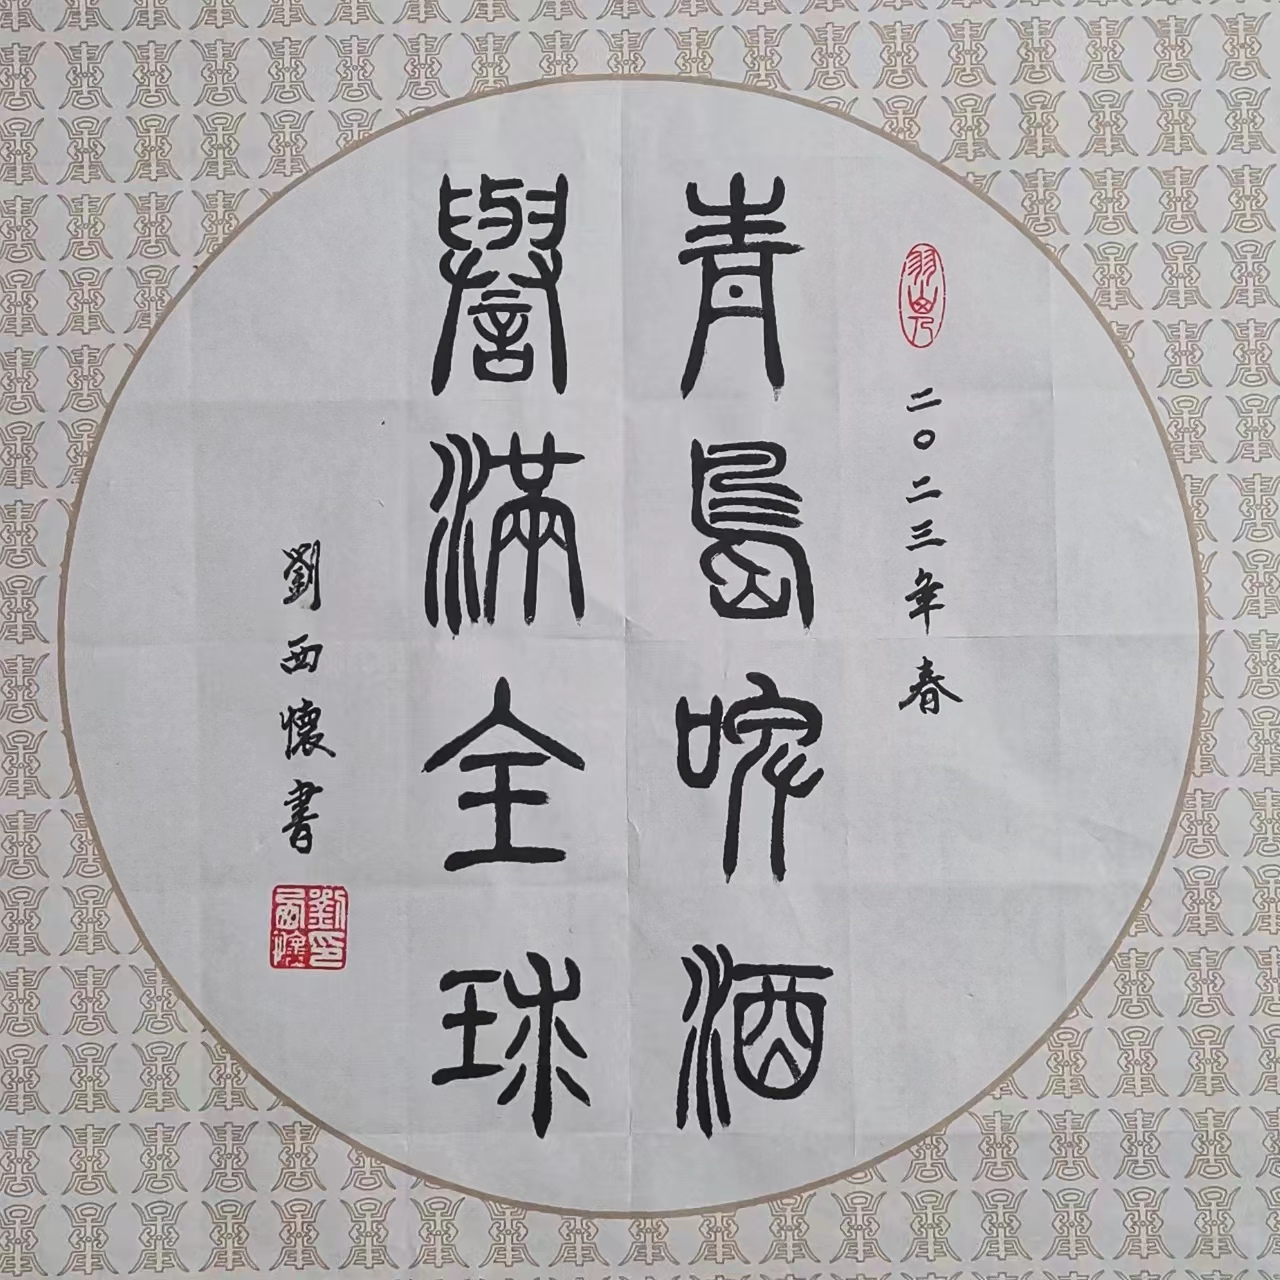 二〇二三年春
青島啤酒
譽滿全球
劉西懷書
劉西懷印